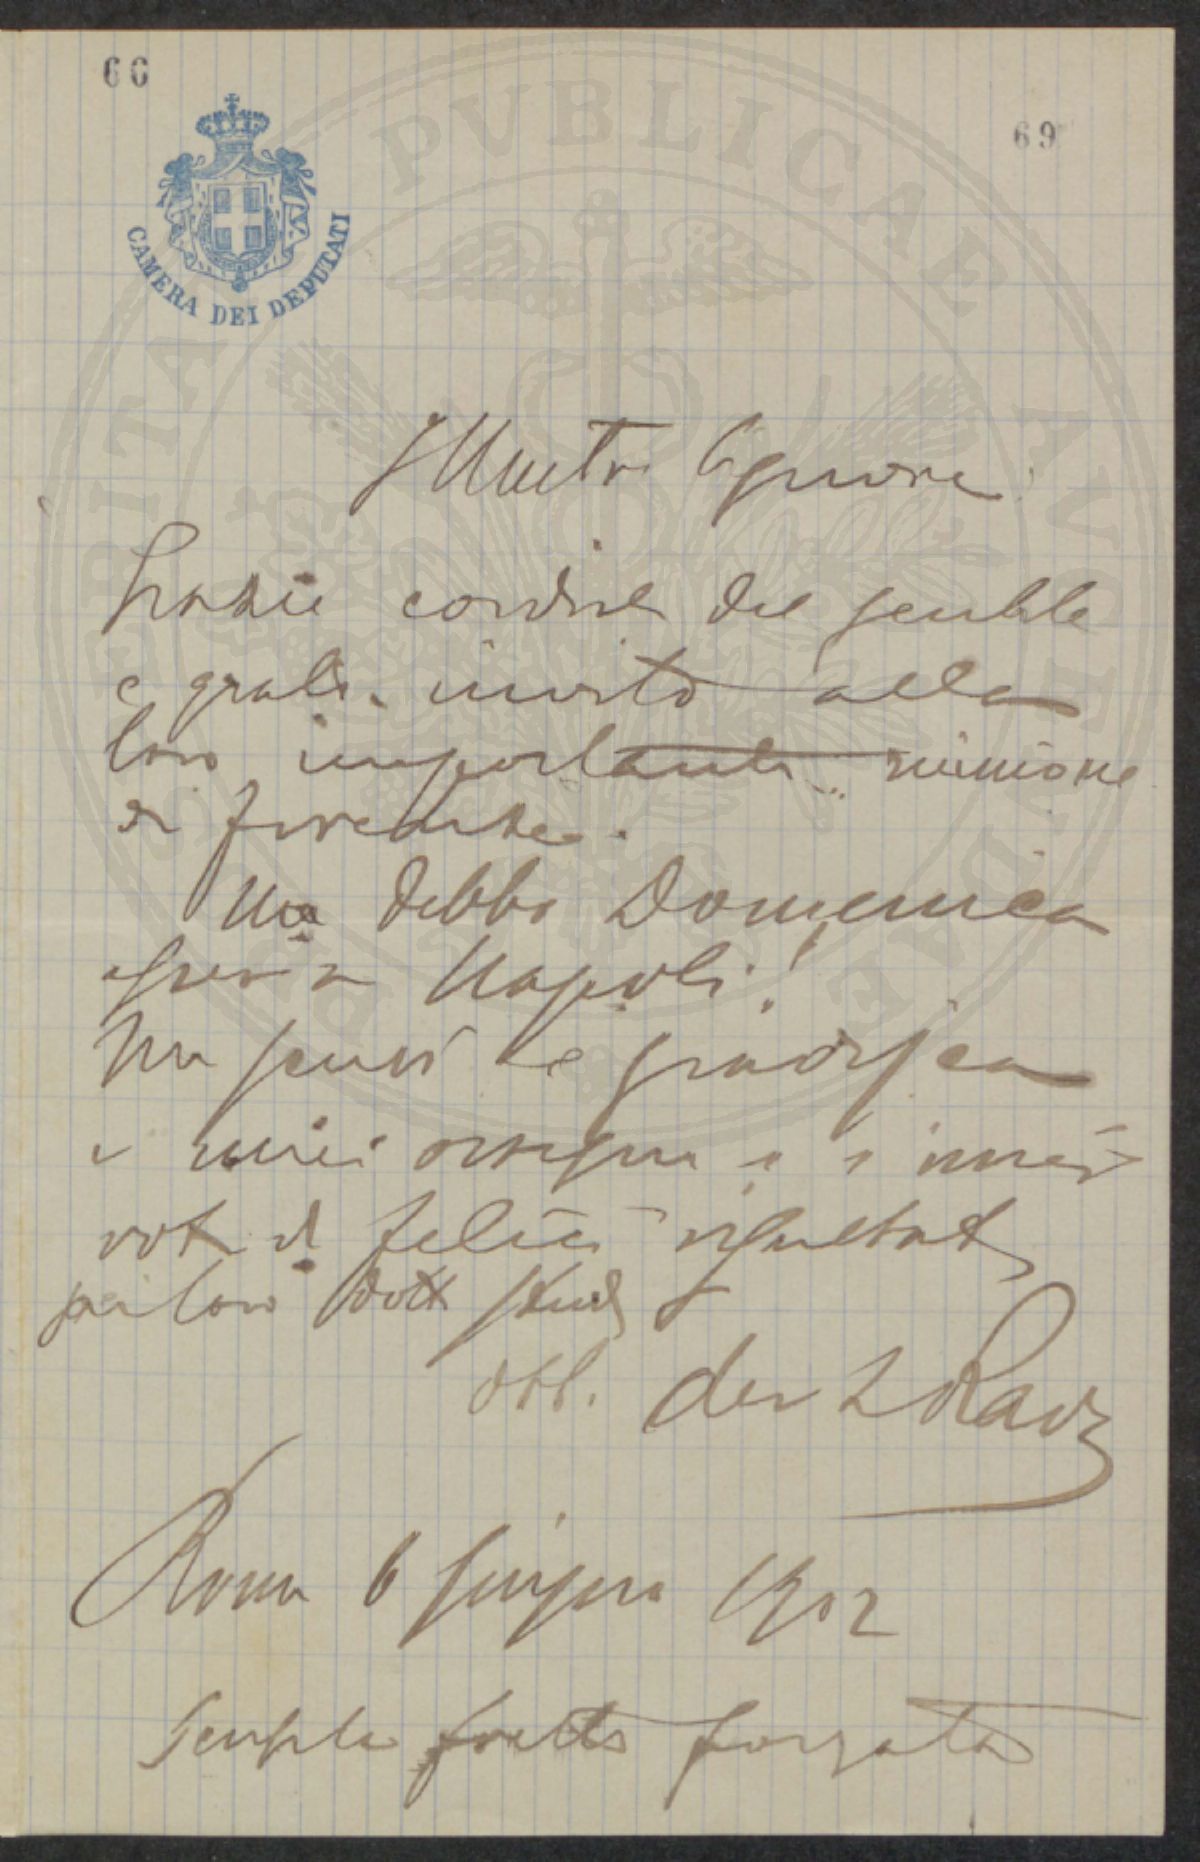 66
69
CAMERA DEI DEPUTATI
PUBLICAE
Illustre Signore
Grazie cordiali del gentile
e gradito invito alla
loro importante riunione
di Firenze.
Ma debbo Domenica
essere a Napoli!
Mi scusi e gradisca
i miei ossequi e i miei
voti di felici risultati
pei loro dotti studi
obb. dev L Rava
Roma 6 giugno 1902